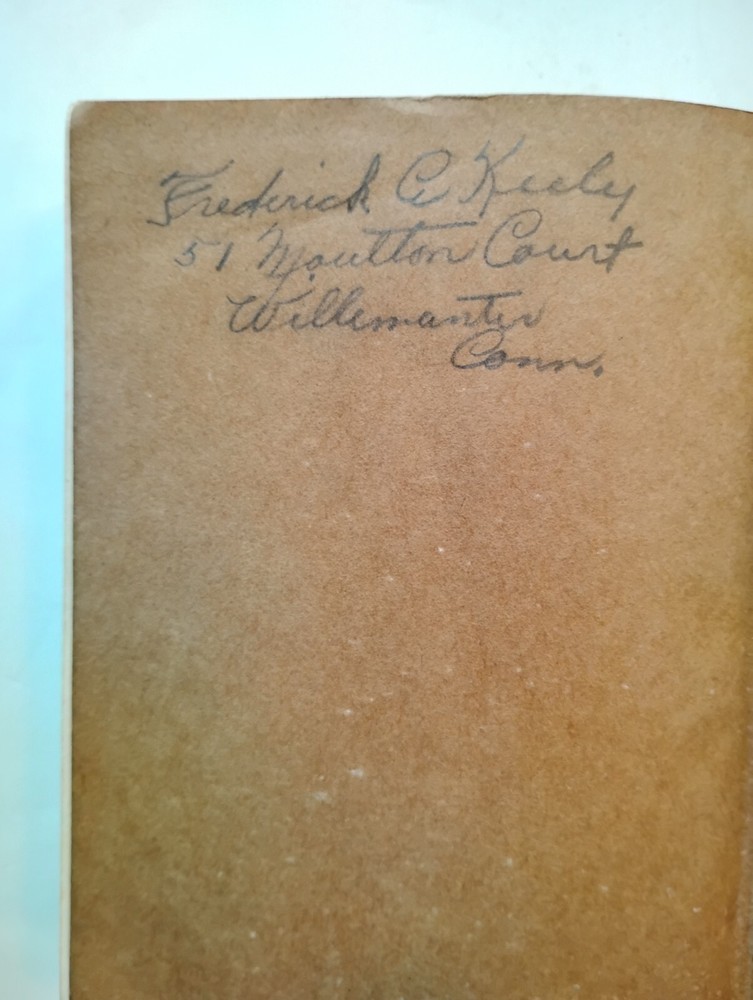 Frederick A Keely
51 Moulton Court
Willemantic
Conn.